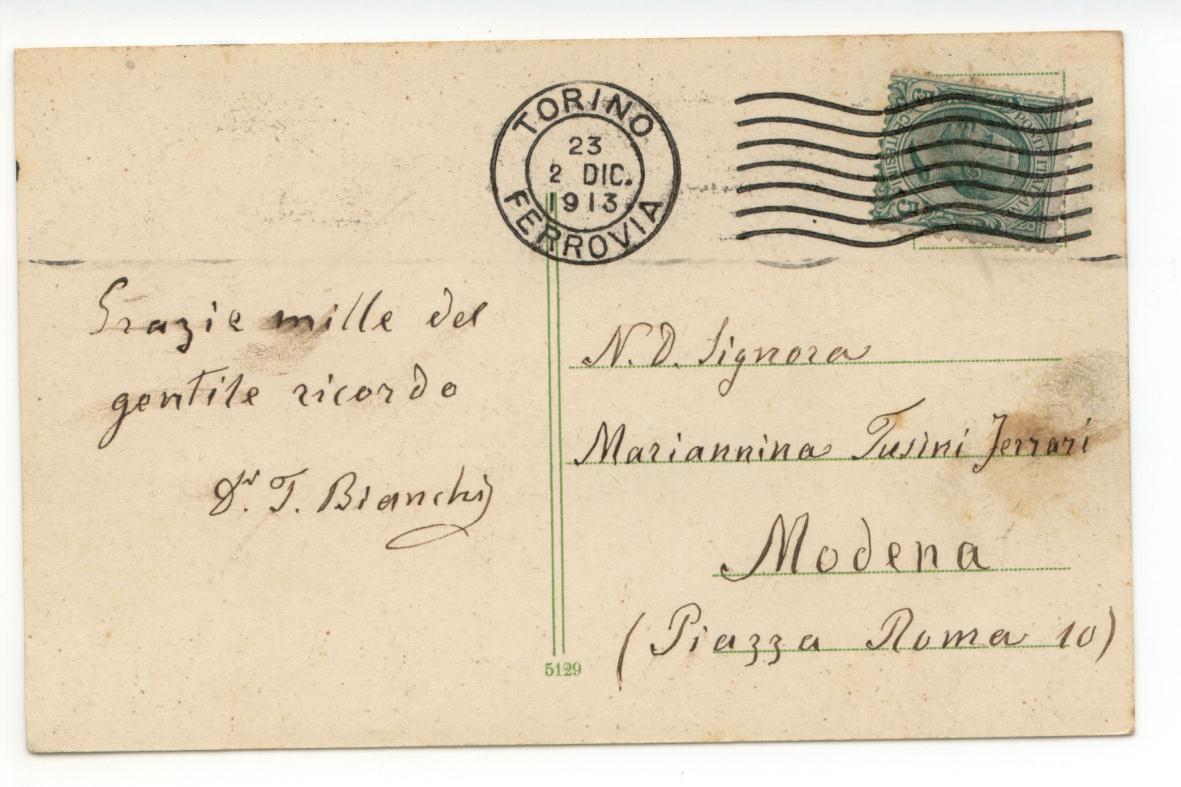 TORINO
23
2 DIC.
913
FERROVIA
POSTE ITALIANE
5
Grazie mille del
gentile ricordo
Dr. T. Bianchi
N. D. Signora
Mariannina Tusini Ferrari
Modena
(Piazza Roma 10)
5129